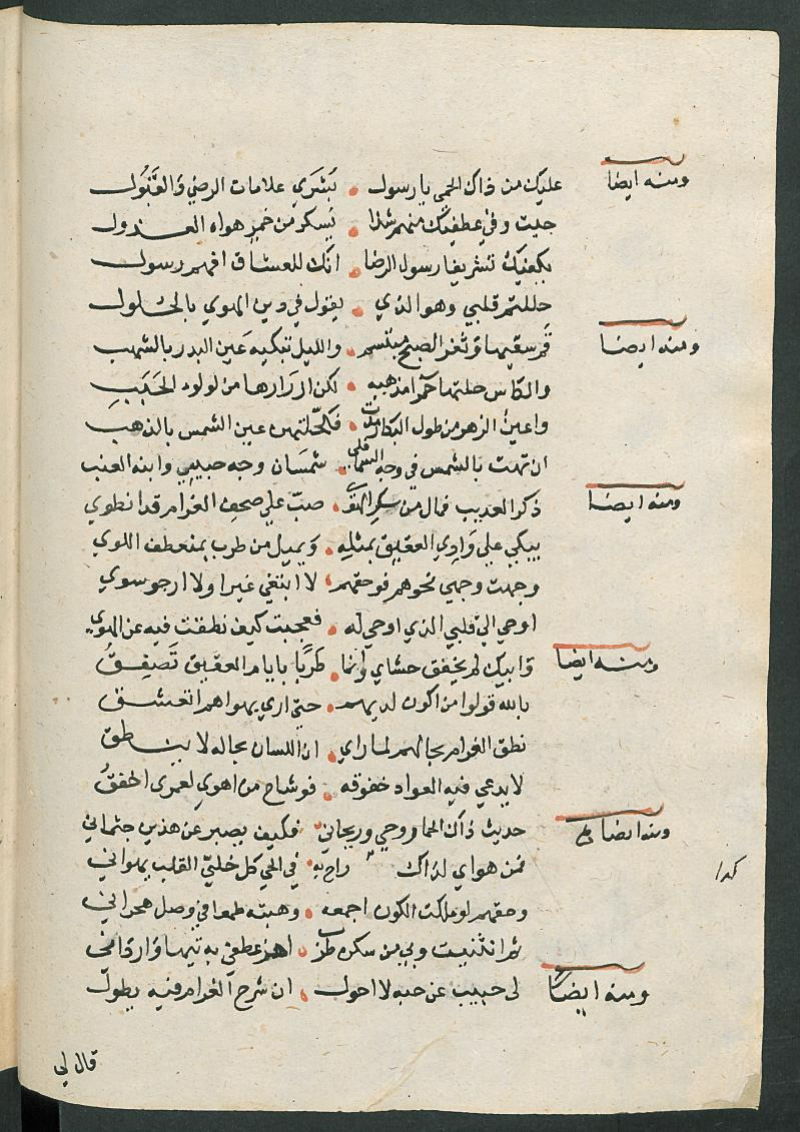 ومنه ايضا عليك من ذاك الحمى يا رسول . بشرى علامات الرضى والقبول
جيت وفي عطفيك منهم شذا . يسكر من خمر هواه العذول
يكفيك تشريفا رسول الرضا . انك للعشاق افهم رسول
حللتم قلبي وهو الذي . يقول في دين الهوي بالحلول
ومنه ايضا قم سقنيها وثغر الصبح مبتسم . والليل تبكيه عين البدر بالشهب
والكاس حلتها حمرا مذهبه . لكن ازرارها من لولوء الحبب
واعين الزهر من طول البكا رمدت . فكحلتهن عين الشمس بالذهب
ان تهت بالشمس في وجه السما فلي . شمسان وجه حبيبي وابنه العنب
ومنه ايضا ذكر العذيب فمال من سكر الهوى . صب علي صحف الغرام قد انطوي
يبكي علي وادي العقيق بمثله . ويميل من طرب بمنعطف اللوي
وجهت وجهي نحوهم فوحقهم . لا ابتغي غيرا ولا ارجو سوي
اوحي الي قلبي الذي اوحي له . فعجبت كيف نطقت فيه عن الهوي
ومنه ايضا وابيك لم يخفق حشاي وانما . طربا بايام العقيق تصفق
بالله قولوا من اكون لديهم . حتى اري بهواهم اتعشق
نطق الغرام بحالهم لما راي . ان اللسان بحاله لا ينطق
لا يدعي فيه العواد خفوقه . فوشاح من اهوي لعمرى اخفق
ومنه ايضا حديث ذاك الحما روحي وريحاني . فكيف يصبر عن هذين جثماني
فمن هواي لذاك راح به . في الحي كل خلي القلب يهواني
كذا
وحقهم لو ملكت الكون اجمعه . وهبته طمعا في وصل هجراني
ثم انثنيت وبي من سكره طرب . اهز عطفي به تيها واردافي
ومنه ايضا لى حبيب عن حبه لا احول . ان شرح الغرام فيه يطول
قال لي